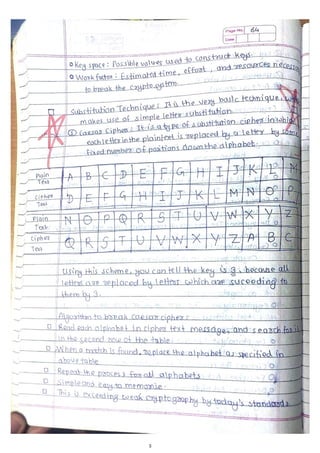 Page No. 64
Date
Key space: Possible values used to construct keys.
Work factor: Estimated time, effort, and resources necessary
to break the cryptosystem
Substitution Technique: It is the very basic technique,
makes use of simple letter substitution
① Caesar Cipher: It is a type of substitution cipher in which
each letter in the plaintext is replaced by a letter by some
fixed number of positions down the alphabet.
Plain Text A B C D E F G H I J K L M
Cipher Text D E F G H I J K L M N O P
Plain Text N O P Q R S T U V W X Y Z
Cipher Text Q R S T U V W X Y Z A B C
Using this scheme, you can tell the key is 3, because all
letters are replaced by letters which are suceeding to
them by 3.
Algorithm to break caesar cipher:
Read each alphabet in cipher text message, and search for it
in the second row of the table
When a match is found, replace the alphabet as specified in
above table
Repeat the process for all alphabets
Simple and easy to memorie
This is exceeding weak cryptography by today's standards